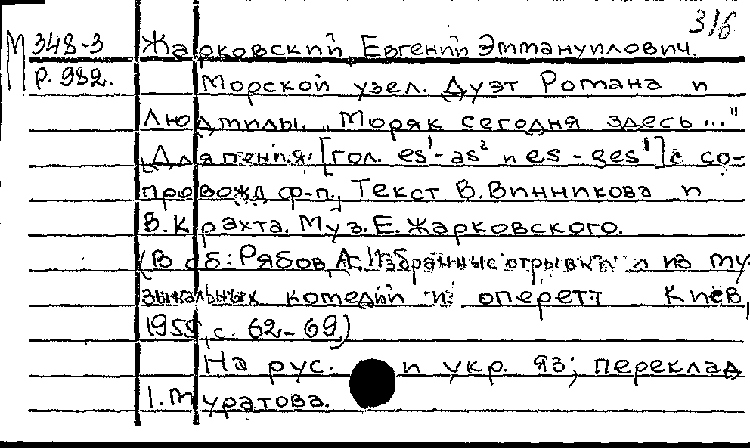 316
М 348-3 Жарковский, Евгений Эммануилович.
Р. 982. Морской узел. Дуэт Романа и
Людмилы. "Моряк сегодня здесь..."
Для пения: [гол. es¹-as² и es-ges¹] с со-
провожд. ф-п. Текст В. Винникова и
В. Крахта. Муз. Е. Жарковского.
(В сб: Рябов, А. Избранные отрывки из му
зыкальных комедий и оперетт Киев,
195 с. 62-69)
На рус. и укр. яз; переклад
І. Муратова.